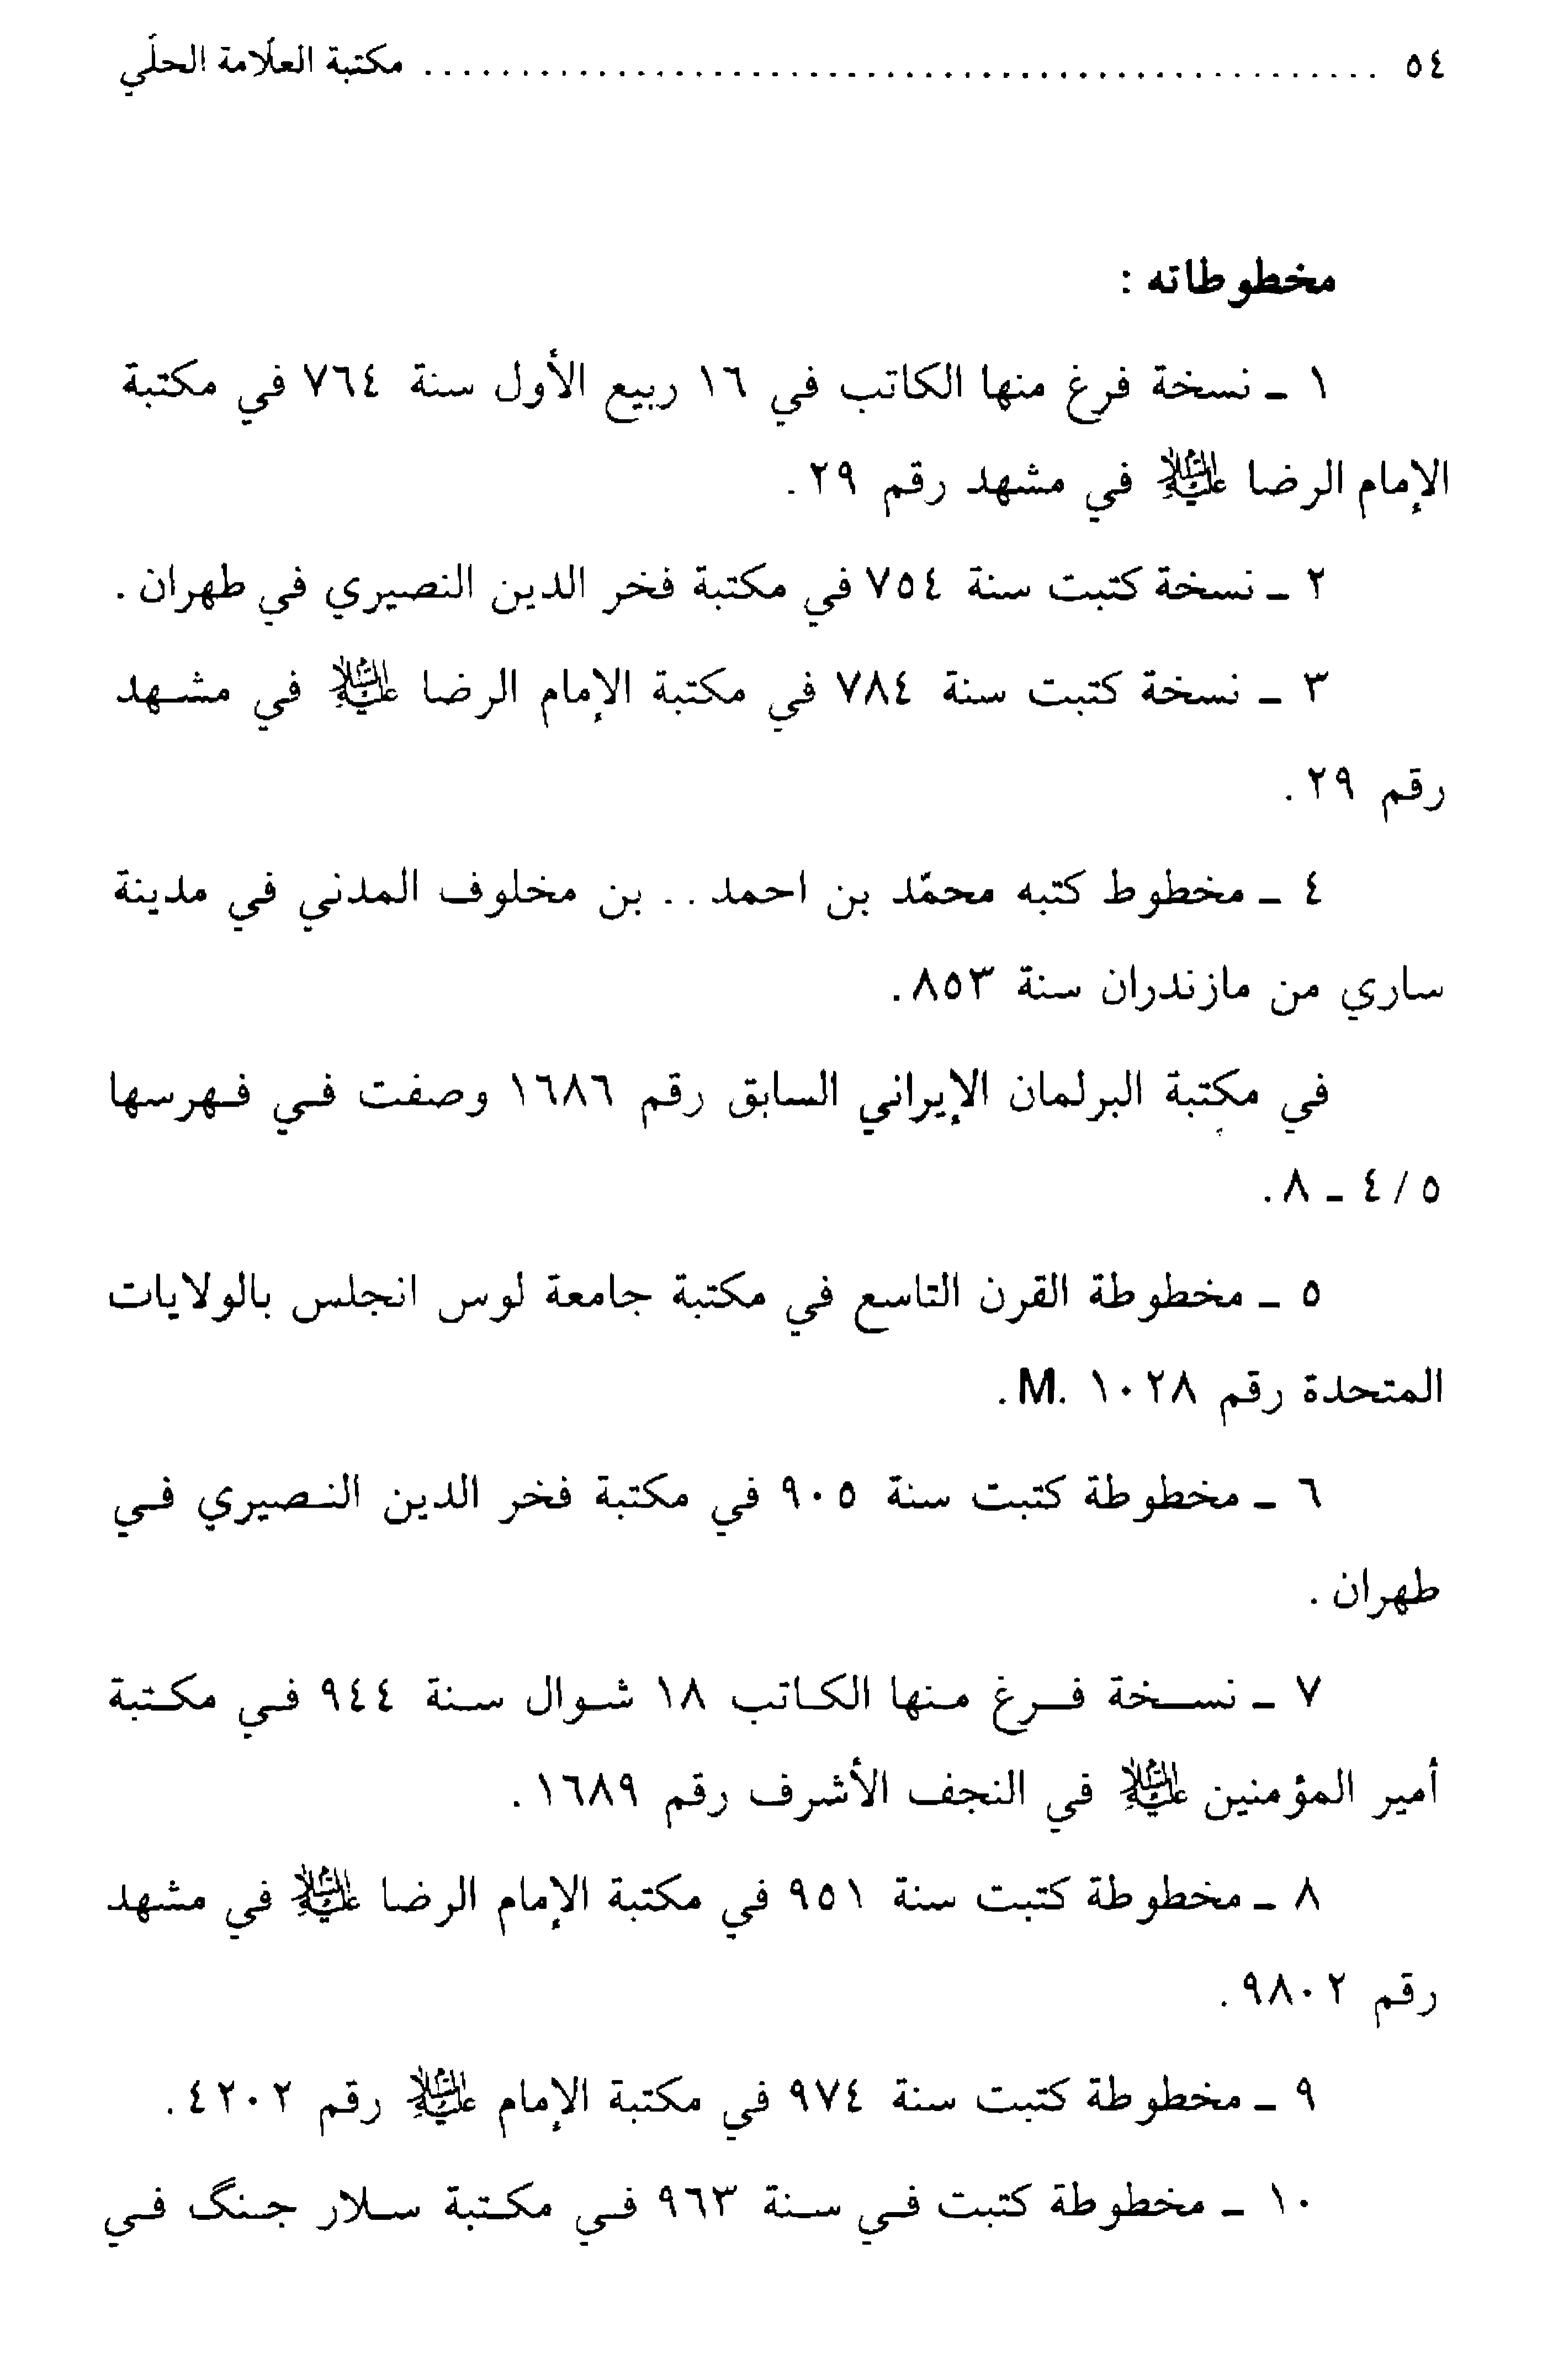 ٥٤ ................................................ مكتبة العلّامة الحلّي
مخطوطاته :
١ ـ نسخة فرغ منها الكاتب في ١٦ ربيع الأول سنة ٧٦٤ في مكتبة
الإمام الرضا عليه السلام في مشهد رقم ٢٩.
٢ ـ نسخة كتبت سنة ٧٥٤ في مكتبة فخر الدين النصيري في طهران .
٣ ـ نسخة كتبت سنة ٧٨٤ في مكتبة الإمام الرضا عليه السلام في مشهد
رقم ٢٩.
٤ ـ مخطوط كتبه محمّد بن احمد .. بن مخلوف المدني في مدينة
ساري من مازندران سنة ٨٥٣.
في مكتبة البرلمان الإيراني السابق رقم ١٦٨٦ وصفت في فهرسها
٥ / ٤ ـ ٨.
٥ ـ مخطوطة القرن التاسع في مكتبة جامعة لوس انجلس بالولايات
المتحدة رقم ١٠٢٨ .M.
٦ ـ مخطوطة كتبت سنة ٩٠٥ في مكتبة فخر الدين النصيري في
طهران .
٧ ـ نسخة فرغ منها الكاتب ١٨ شوال سنة ٩٤٤ في مكتبة
أمير المؤمنين عليه السلام في النجف الأشرف رقم ١٦٨٩.
٨ ـ مخطوطة كتبت سنة ٩٥١ في مكتبة الإمام الرضا عليه السلام في مشهد
رقم ٩٨٠٢.
٩ ـ مخطوطة كتبت سنة ٩٧٤ في مكتبة الإمام عليه السلام رقم ٤٢٠٢.
١٠ ـ مخطوطة كتبت في سنة ٩٦٣ في مكتبة سلار جنگ في